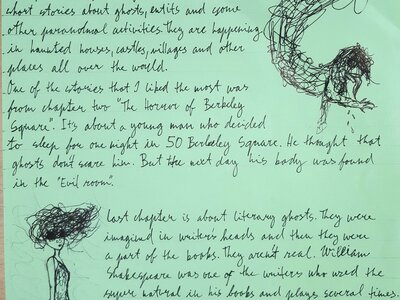 short stories about ghosts, entits and some
other paranolmal activities. They are happening
in haunted houses, castles, villages and other
places all over the world.
One of the stories that I liked the most was
from chapter two "The Horror of Berkeley
Square". It's about a young man who decided
to sleep for one night in 50 Berkeley Square. He thought that
ghosts don't scare him. But the next day his body was found
in the "Evil room".
Last chapter is about literary ghosts. They were
imagind in writer's heads and then they were
a part of the books. They aren't real. William
Shakespeare was one of the writers who used the
super natural in his books and plays several times.